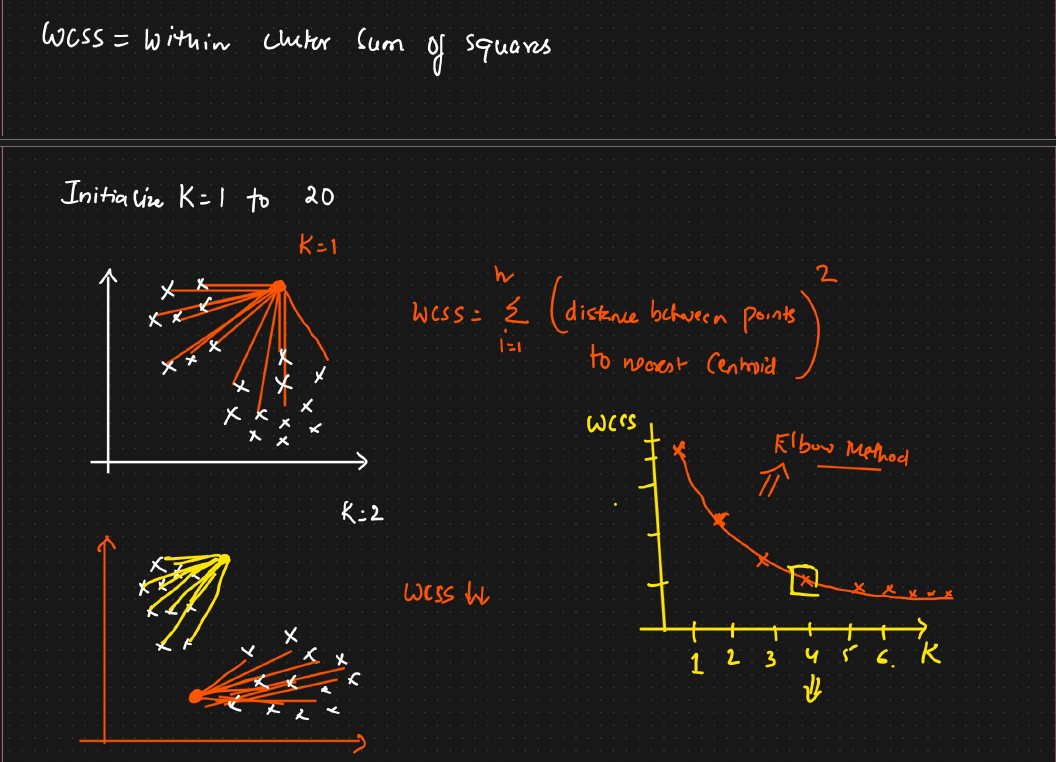 WCSS = Within cluster Sum of squares
Initialize K=1 to 20
K=1
WCSS = n Σ i=1 (distance between points to nearest Centroid)²
WCSS
Elbow Method
K=2
WCSS ↓↓
1 2 3 4 5 6. K